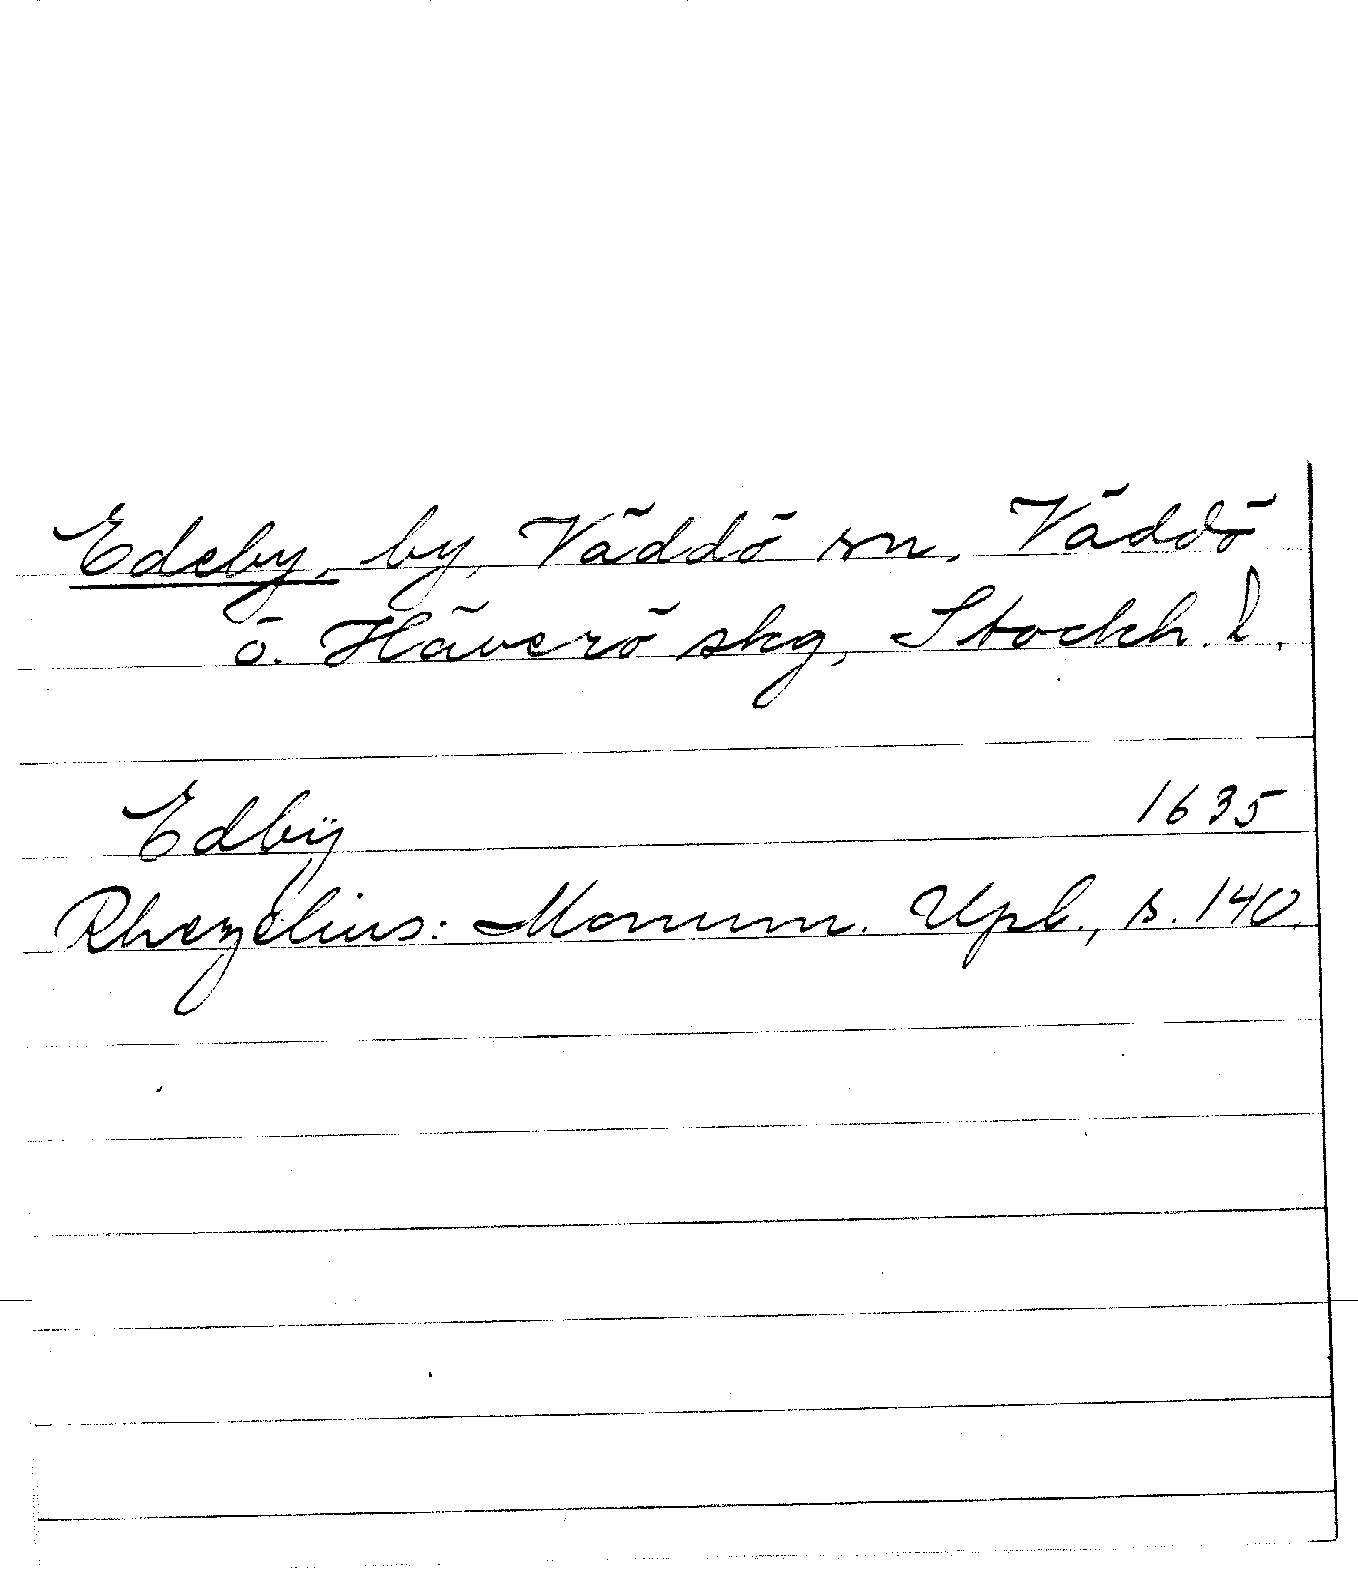 Edeby, by, Väddö sn, Väddö
o. Häverö skg, Stockh. l.
Edbÿ 1635
Rhezelius: Monum. Upl., s. 140.